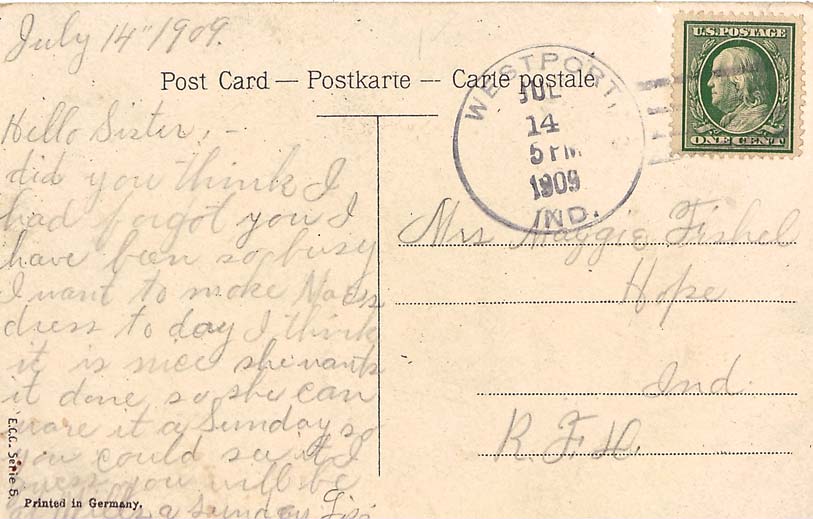 July 14" 1909.
U.S. POSTAGE
ONE CENT
Post Card — Postkarte -- Carte postale.
WESTPORT,
JUL
14
5 PM
1909
IND.
Hello Sister, -
did you think I
had forgot you I
have been so busy
I want to make Maess
dress to day I think
it is nice she wants
it done so she can
ware it a Sunday so
you could see it I
guess you will be
a sunday
Mrs Maggie Fishel
Hope
Ind.
R.F.D.
E.C.C. Serie 5.
Printed in Germany.